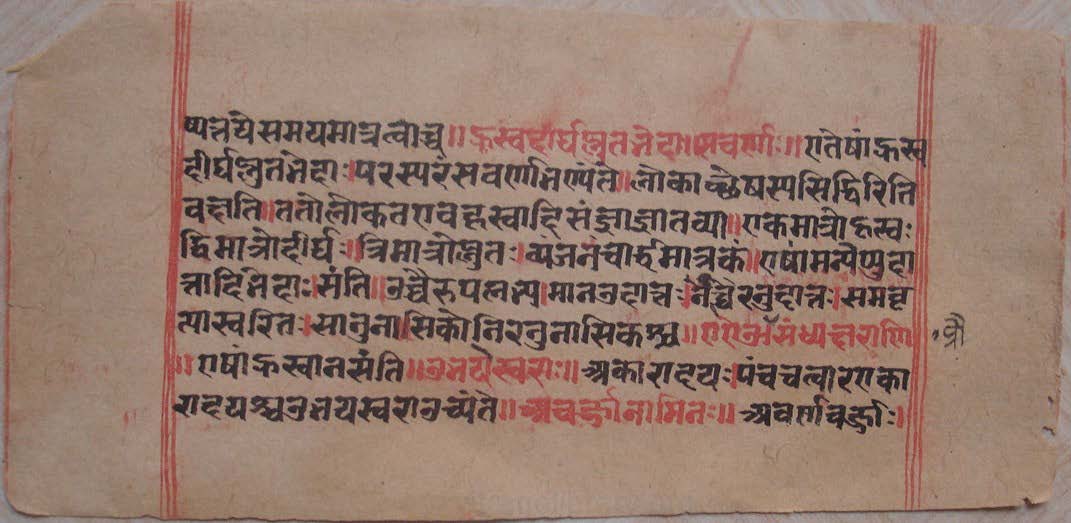 प्यन्नये समयमात्रत्वाच्च॥ ह्रस्वदीर्घप्लुतभेदाः सवर्णाः॥ एतेषां ह्रस्व
दीर्घप्लुतभेदाः परस्परं सवर्णा भण्यंते॥ लोकाच्छेषस्य सिद्धिरिति
वक्ष्यति॥ ततो लोकत एव ह्रस्वादिसंज्ञा ज्ञातव्या॥ एकमात्रो ह्रस्वः
द्विमात्रो दीर्घः। त्रिमात्रो प्लुतः। व्यंजनं चार्द्धमात्रकं॥ एषामन्येप्युदा
त्तादिभेदाः संति॥ उच्चैरुपलभ्यमान उदात्तः। नीचैरनुदात्तः। समवृ
त्यास्वरितः। सानुनासिको निरनुनासिकश्च॥ ए ऐ ओ औ संध्यक्षराणि
औ
॥ एषां ह्रस्वा न संति॥ उभये स्वराः॥ अकारादयः पंच चत्वार एका
रादयश्च उभये स्वरा उच्यंते॥ अवर्ज्जा नामिनः॥ अवर्णवर्ज्जाः।